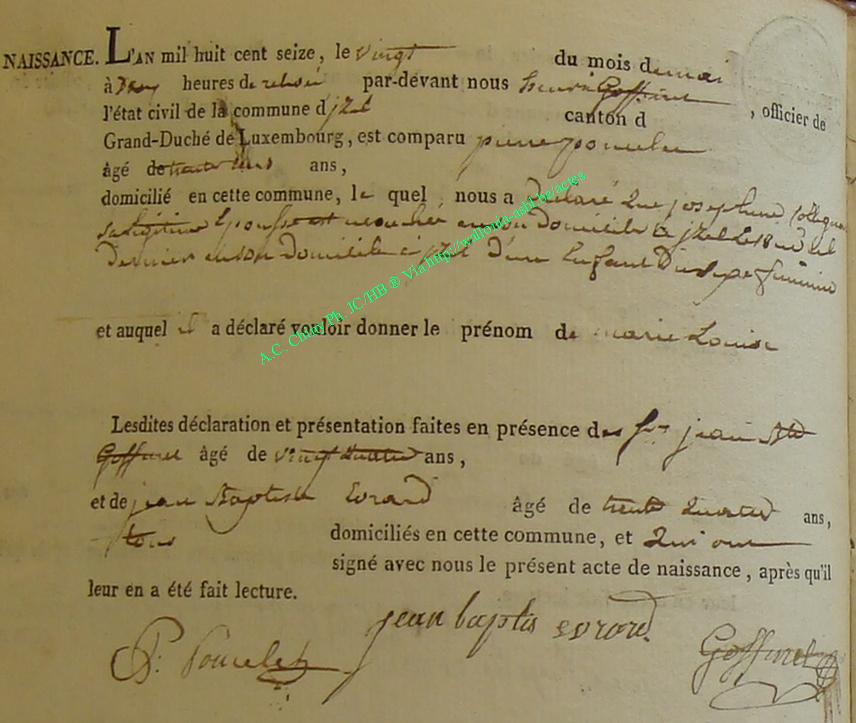 NAISSANCE. L'AN mil huit cent seize, le vingt du mois de mai
à heures de relevé par-devant nous henri Goffinet, officier de
l'état civil de la commune d jzel canton d
Grand-Duché de Luxembourg, est comparu pierre poncelet
âgé de trente ans,
domicilié en cette commune, le quel, nous a déclaré que josephine
sa légitime épouse est accouchée en son domicile à jzel le 18 du
dernier en son domicile à jzel d'une Enfant du sexe feminin
et auquel il a déclaré vouloir donner le prénom de marie Louise
Lesdites déclaration et présentation faites en présence des jean
Goffinet âgé de vingt quatre ans,
et de jean Baptiste Evrard âgé de trente quatre ans,
tous domiciliés en cette commune, et qui ont
signé avec nous le présent acte de naissance, après qu'il
leur en a été fait lecture.
P. Poncelet jean baptis evrard. Goffinet
A.C. Chiny Ph. JC/HB ® Via http://wallonia-asbl.be/actes